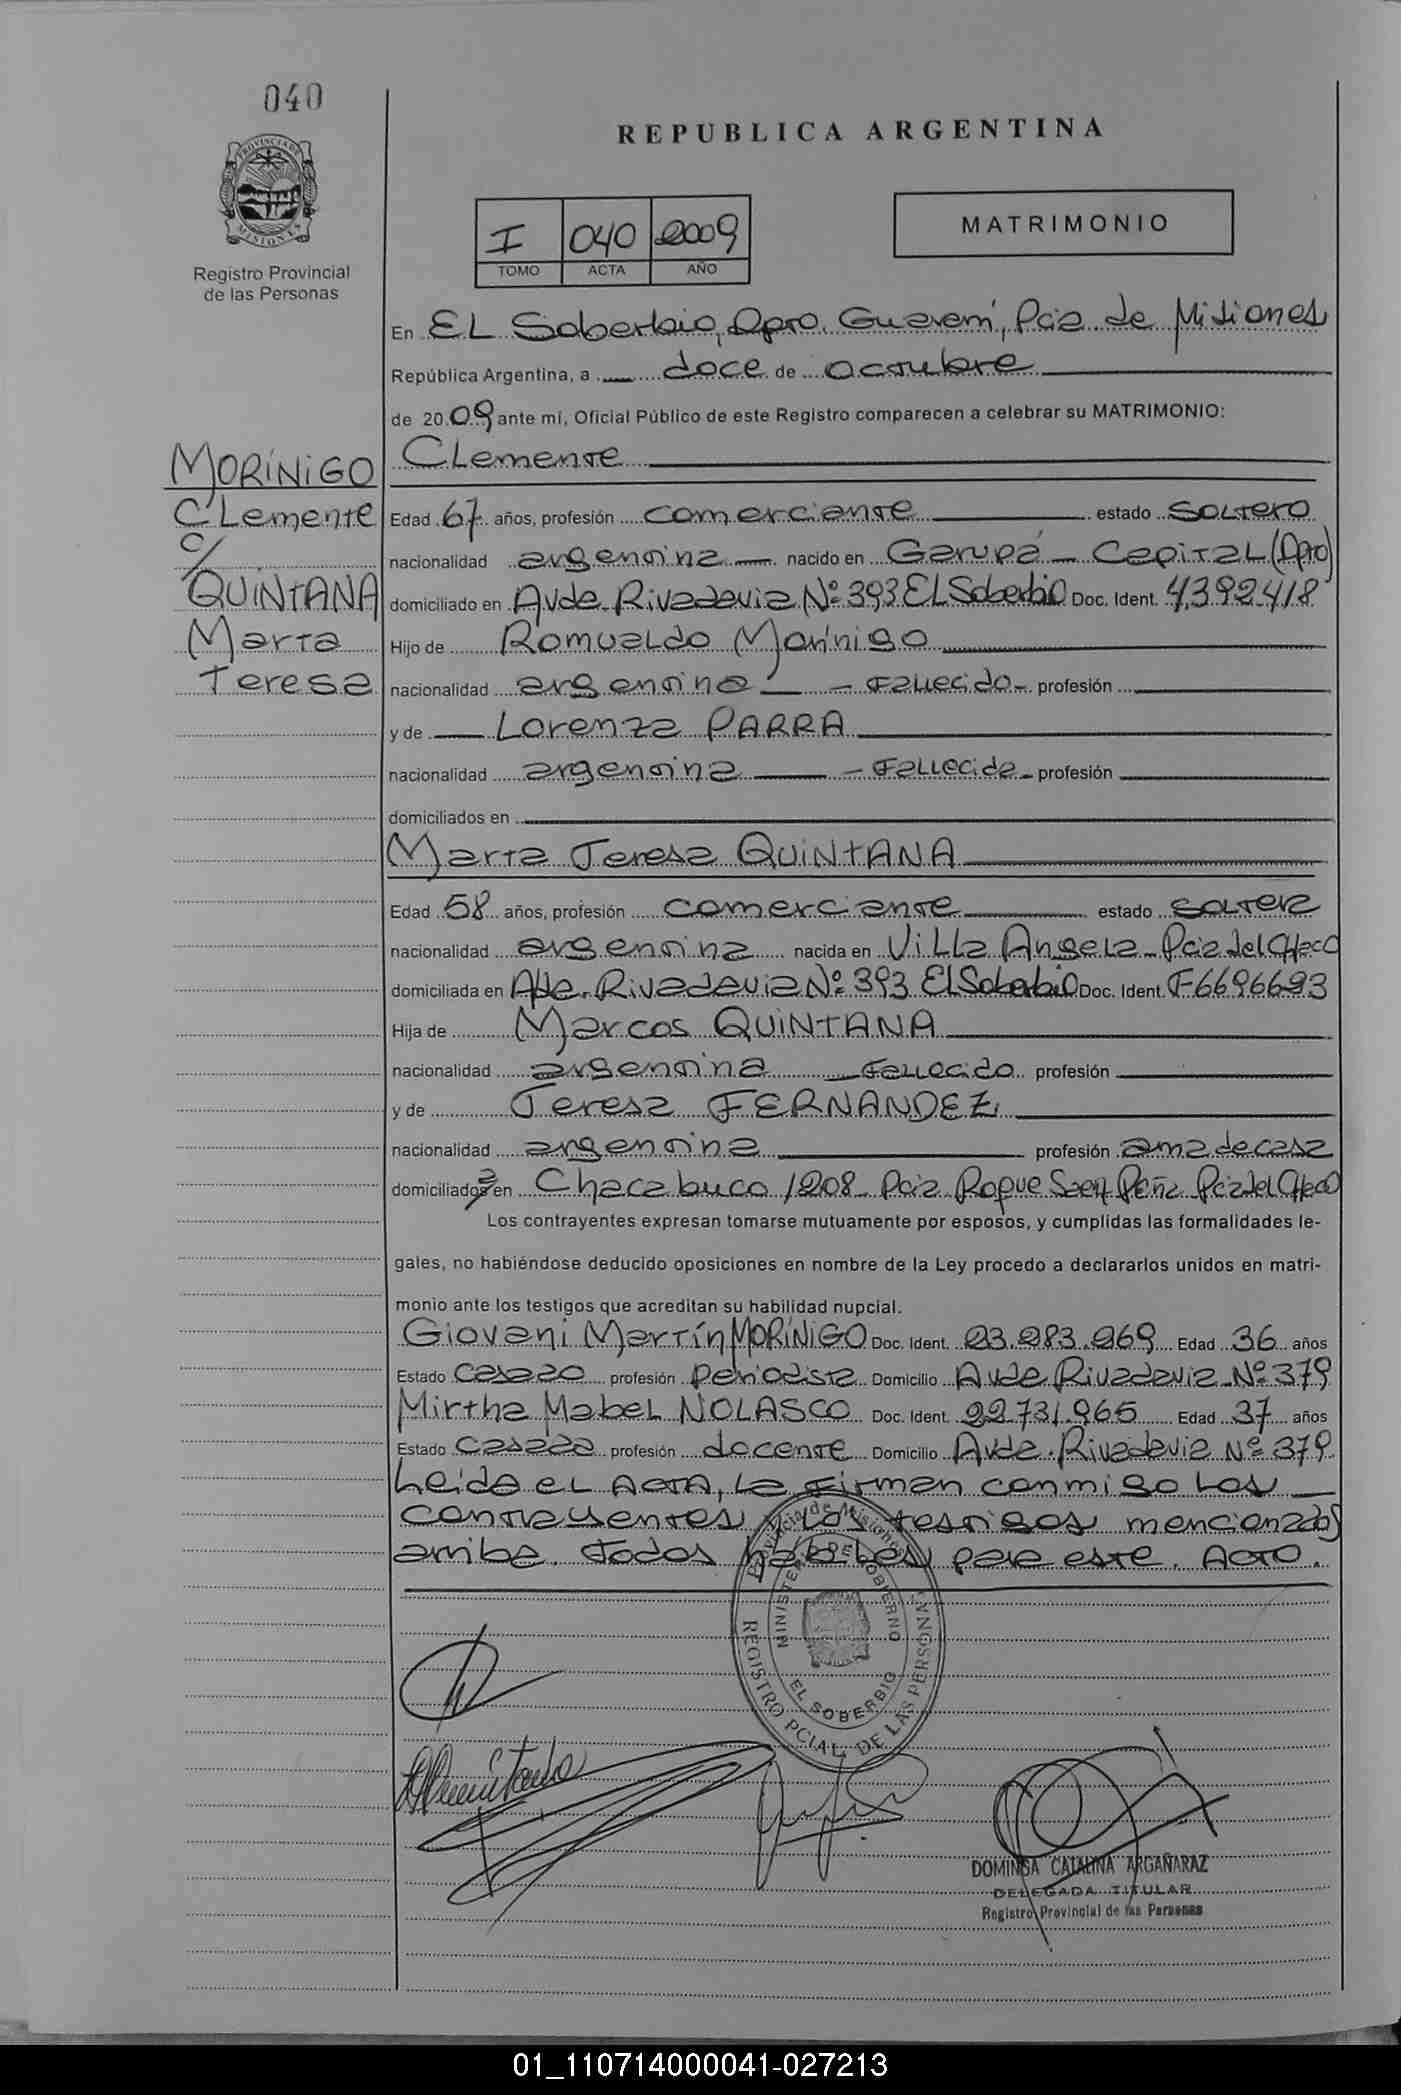 040
REPUBLICA ARGENTINA
PROVINCIA DE
MISIONES
Registro Provincial
de las Personas
MATRIMONIO
I 040 2009
TOMO ACTA AÑO
En EL Soberbio, Dpto. Guaraní, Pcia de Misiones
República Argentina, a doce de octubre
de 2009 ante mí, Oficial Público de este Registro comparecen a celebrar su MATRIMONIO:
MORÍNIGO
CLemente
c/
QUINTANA
Marta
Teresa
CLemente
Edad 67 años, profesión comerciante estado SOLTERO
nacionalidad argentina nacido en Garupá - CapiTaL (Dpto)
domiciliado en Avda. Rivadavia Nº 393 EL Soberbio Doc. Ident. 4.392.418
Hijo de RomuaLdo Morínigo
nacionalidad argentina - FaLLecido - profesión
y de Lorenza PARRA
nacionalidad argentina - FaLLecida - profesión
domiciliados en
Marta Teresa QUINTANA
Edad 58 años, profesión comerciante estado soLtera
nacionalidad argentina nacida en ViLLa AngeLa - Pcia del Chaco
domiciliada en Avda. Rivadavia Nº 393 EL Soberbio Doc. Ident. F-6696693
Hija de Marcos QUINTANA
nacionalidad argentina FaLLecido profesión
y de Teresa FERNANDEZ
nacionalidad argentina profesión ama de casa
domiciliados en Chacabuco 1208 - Pcia Roque Saen Peña Pcia del Chaco
Los contrayentes expresan tomarse mutuamente por esposos, y cumplidas las formalidades le-
gales, no habiéndose deducido oposiciones en nombre de la Ley procedo a declararlos unidos en matri-
monio ante los testigos que acreditan su habilidad nupcial.
Giovani Martín MORÍNIGO Doc. Ident. 23.283.269 Edad 36 años
Estado casado profesión periodista Domicilio Avda Rivadavia Nº 379
Mirtha MabeL NOLASCO Doc. Ident. 22.731.965 Edad 37 años
Estado casada profesión docente Domicilio Avda. Rivadavia Nº 379
Leída eL ActA, La firman conmigo Los
contrayentes y Los testigos mencionados
arriba. Todos hábiLes para este Acto.
Provincia de Misiones
MINISTERIO DE GOBIERNO
EL SOBERBIO
REGISTRO PCIAL. DE LAS PERSONAS
MQuintana
DOMINGA CATALINA ARGAÑARAZ
DELEGADA TITULAR
Registro Provincial de las Personas
01_110714000041-027213